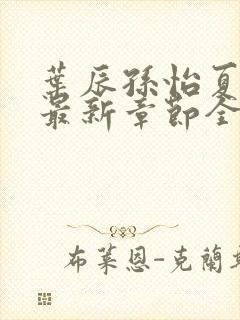 葉辰孫怡夏
最新章節全
布萊恩-克蘭